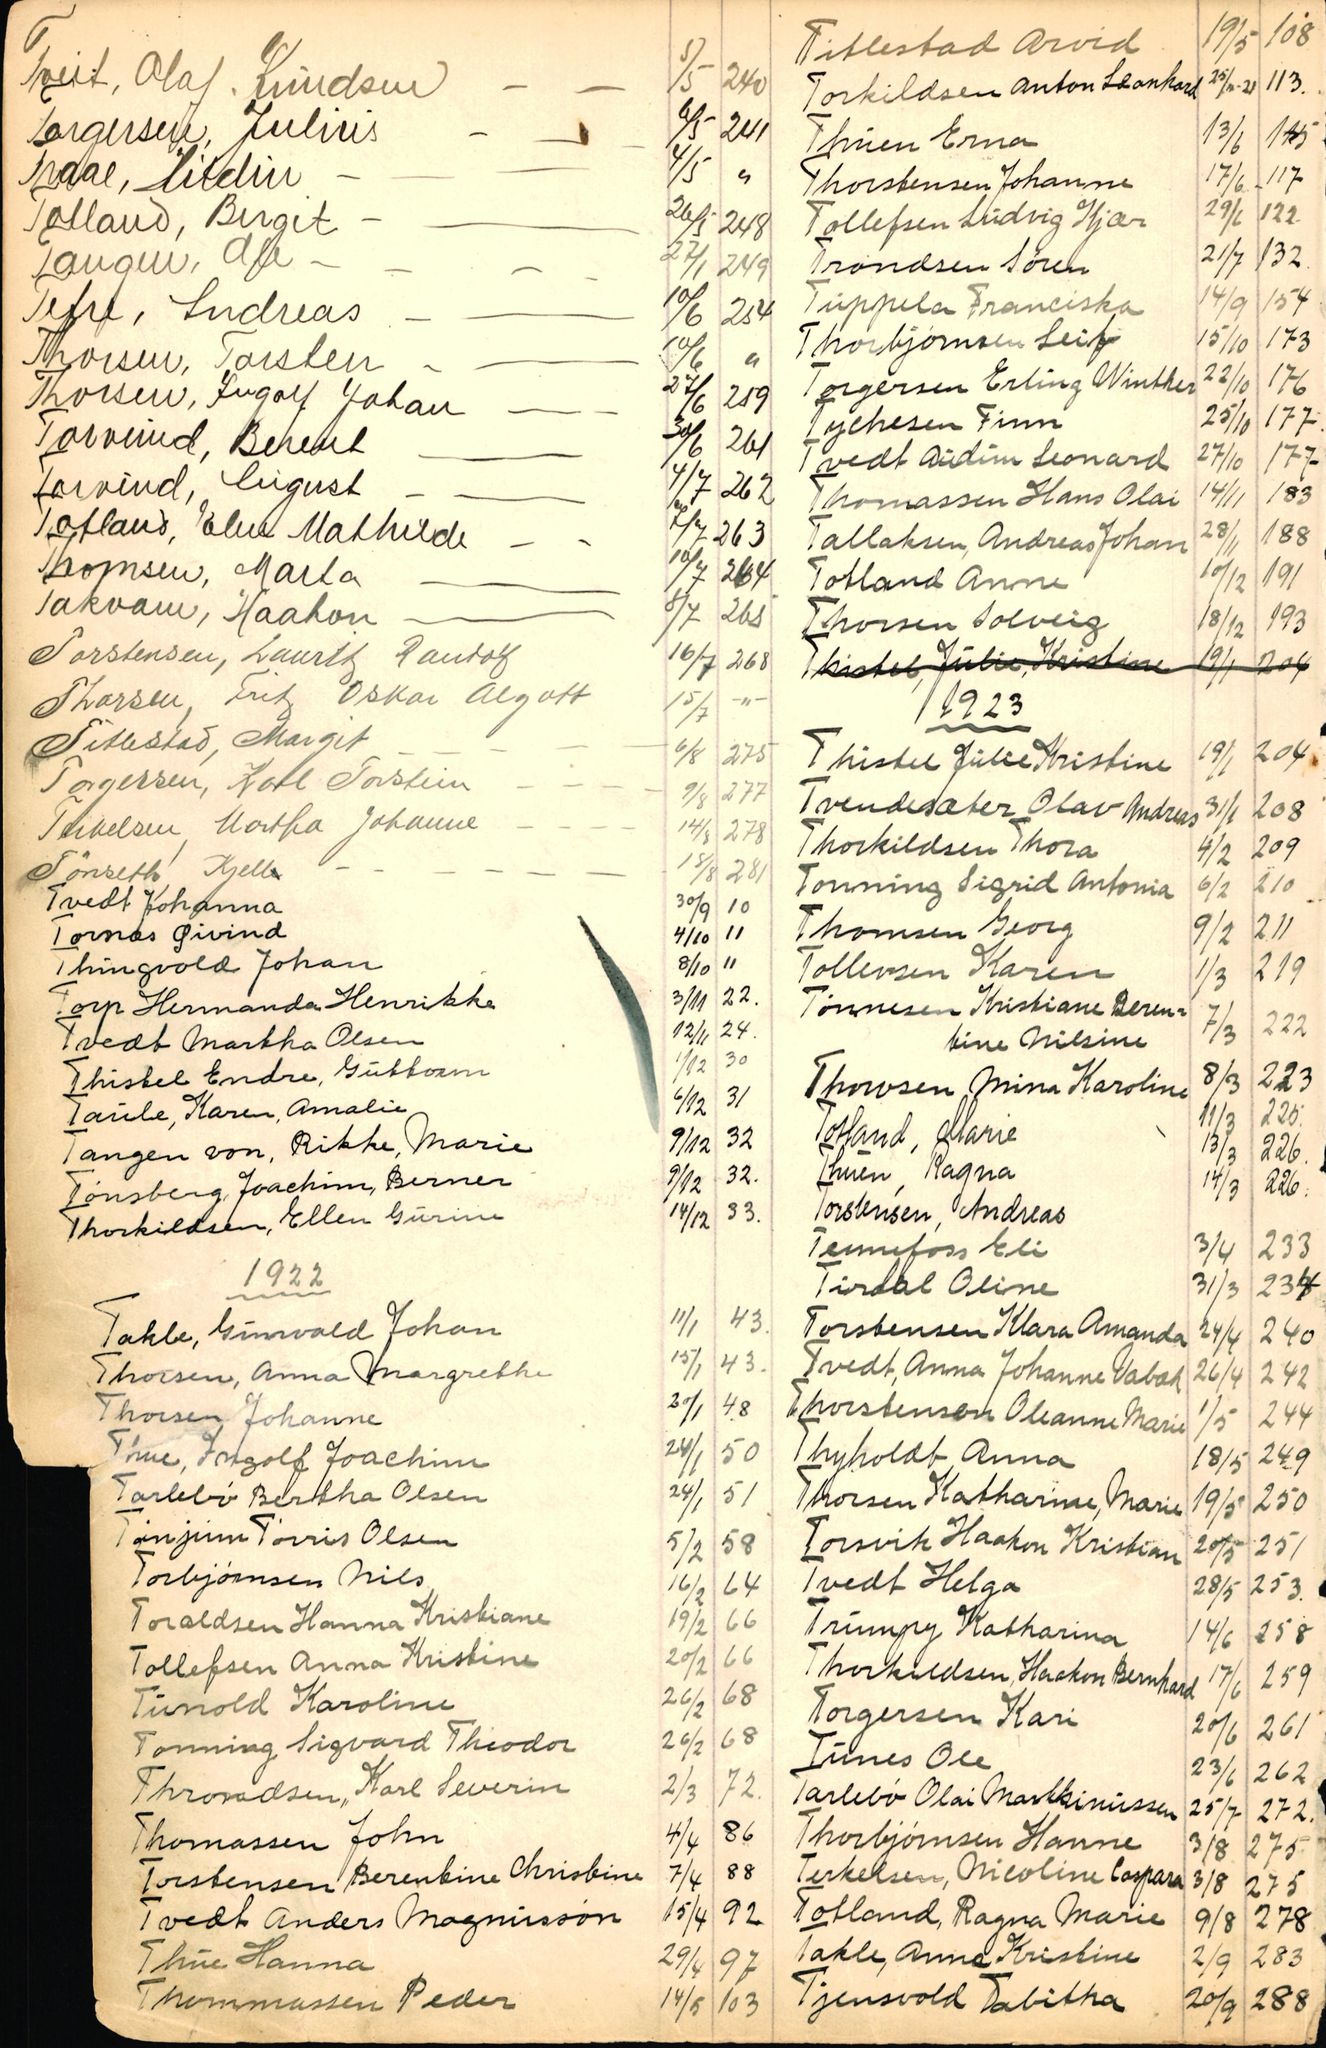 T
Tveit, Olaf Knudsen — — 5/5 240
Torgersen, Julius - — 6/5 241
Traae, — — 4/5 "
Tolland, Birgit - — 26/5 248
Tangen, - - - - 27/1 249
Tefre, Andreas - — 10/6 254
Thorsen, Torsten - — 10/6 "
Thorsen, Ingolf Johan — - 27/6 259
Torvund, Berent — 30/6 261
Torvund, August - — 4/7 262
Totland, Mathilde - - 7/7 263
Thomsen, Marta — 10/7 264
Takvam, Haakon — 8/7 265
Torstensen, Lauritz Randolf 16/7 268
Thorsen, Fritz Oskar Algott 15/7 -"-
Titlestad, Margit - - - - 6/8 275
Torgersen, Karl Torstein - - - - 9/8 277
Terkelsen, Martha Johanne - - - - 14/8 278
Tönseth Kjell - - - - - - 15/8 281
Tvedt Johanna 30/9 10
Tornæs Øivind 4/10 11
Thingvold Johan 8/10 11
Torp Hermanda Henrikke 3/11 22.
Tvedt Martha Olsen 12/11 24.
Thistel Endre, Guttorm 1/12 30
Taule, Karen, Amalie 6/12 31
Tangen von, Rikke, Marie 9/12 32
Tønsberg, Joachim, Berner 9/12 32.
Thorkildsen, Ellen Gurine 14/12 33.
1922
Takle, Gunvald Johan 11/1 43.
Thorsen, Anna Margrethe 15/1 43.
Thorsen Johanne 20/1 48
Thue, Ingolf Joachim 24/1 50
Tarlebø Bertha Olsen 24/1 51
Tønjum Torris Olsen 5/2 58
Torbjørnsen Nils 16/2 64
Toraldsen Hanna Kristiane 19/2 66
Tollefsen Anna Kristine 20/2 66
Tunold Karoline 26/2 68
Tonning Sigvard Theodor 26/2 68
Throndsen, Karl Severin 2/3 72.
Thomassen John 4/4 86
Torstensen Berentine Christine 7/4 88
Tvedt Anders Magnusson 15/4 92
Thue Hanna 29/4 97
Thommassen Peder 14/5 103
Titlestad Arvid 19/5 108
Torkildsen Anton Leonhard 113.
Thuen Erna 13/6 115
Thorstensen Johanne 17/6 117
Tollefsen Ludvig Hjær 29/6 122
Trondsen Søren 21/7 132
Tuppela Franciska 14/9 154
Thorbjørnsen Leif 15/10 173
Torgersen Erling Winther 22/10 176
Tychesen Finn 25/10 177.
Tvedt Audun Leonard 27/10 177
Thomassen Hans Olai 14/11 183
Tallaksen, Andreas Johan 28/11 188
Totland Anne 10/12 191
Thorsen Solveig 18/12 193
Thistel, Julie, Kristine 19/1 204
1923
Thistel Julie Kristine 19/1 204
Tvendesæter Olav Andreas 31/1 208
Thorkildsen Thora 4/2 209
Tonning Sigrid Antonia 6/2 210
Thomsen Georg 9/2 211
Tollevsen Karen 1/3 219
Tønnesen Kristiane Beren-
tine Nilsine 7/3 222
Thorvsen, Mina Karoline 8/3 223
Totland, Marie 11/3 225.
Thuen, Ragna 13/3 226.
Torstensen, Andreas 14/3 226.
Tennefoss Eli 3/4 233
Tirdal Oline 31/3 234
Torstensen Klara Amanda 24/4 240
Tvedt, Anna Johanne Vabak 26/4 242
Thorstensen Oleanne Marie 1/5 244
Thyholdt, Anna 18/5 249
Thorsen Katharine, Marie 19/5 250
Torsvik Haakon Kristian 20/5 251
Tvedt Helga 28/5 253.
Trumpy Katharina 14/6 258
Thorkildsen, Haakon Bernhard 17/6 259
Torgersen Kari 20/6 261
Tunes Ole 23/6 262
Tarlebø Olai Martinussen 25/7 272.
Thorbjørnsen Hanne 3/8 275
Terkelsen, Nicoline Caspara 3/8 275
Totland, Ragna Marie 9/8 278
Takle, Anna Kristine 2/9 283
Tjensvold Tabitha 20/9 288